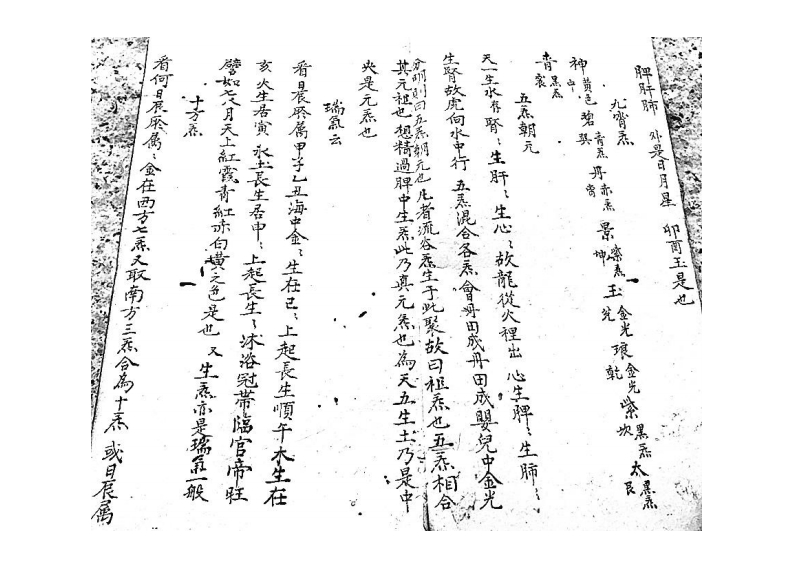 脾肝肺 外是日月星 卯酉玉是也
九霄炁
神中 黄色碧巽 青炁丹离 赤炁景坤 紫炁玉兑 金光琅乾 金光紫坎 黑炁太艮 黑炁
青震 黑炁
五炁朝元
天一生水在腎〻生肝〻生心〻故龍從火裡出 心生脾〻生肺〻
生腎故虎向水中行 五炁混合各炁會丹田成丹田成嬰兒中金光
分明則曰五炁朝元也凡者流谷炁生于此聚故曰祖炁也五炁相合
其元祖也想精過脾中生炁此乃真元炁也為天五生土乃是中
央是元炁也
瑞氣云
看日辰所属甲子乙丑海中金〻生在巳〻上起長生順午木生在
亥火生居寅水土長生居申〻上起長生〻沐浴冠帶臨官帝旺
譬如七八月天上紅霞青紅赤白黄之色是也 又生炁亦是瑞氣一般
十方炁
看何日辰所属〻金在西方七炁又取南方三炁合為十炁 或日辰属